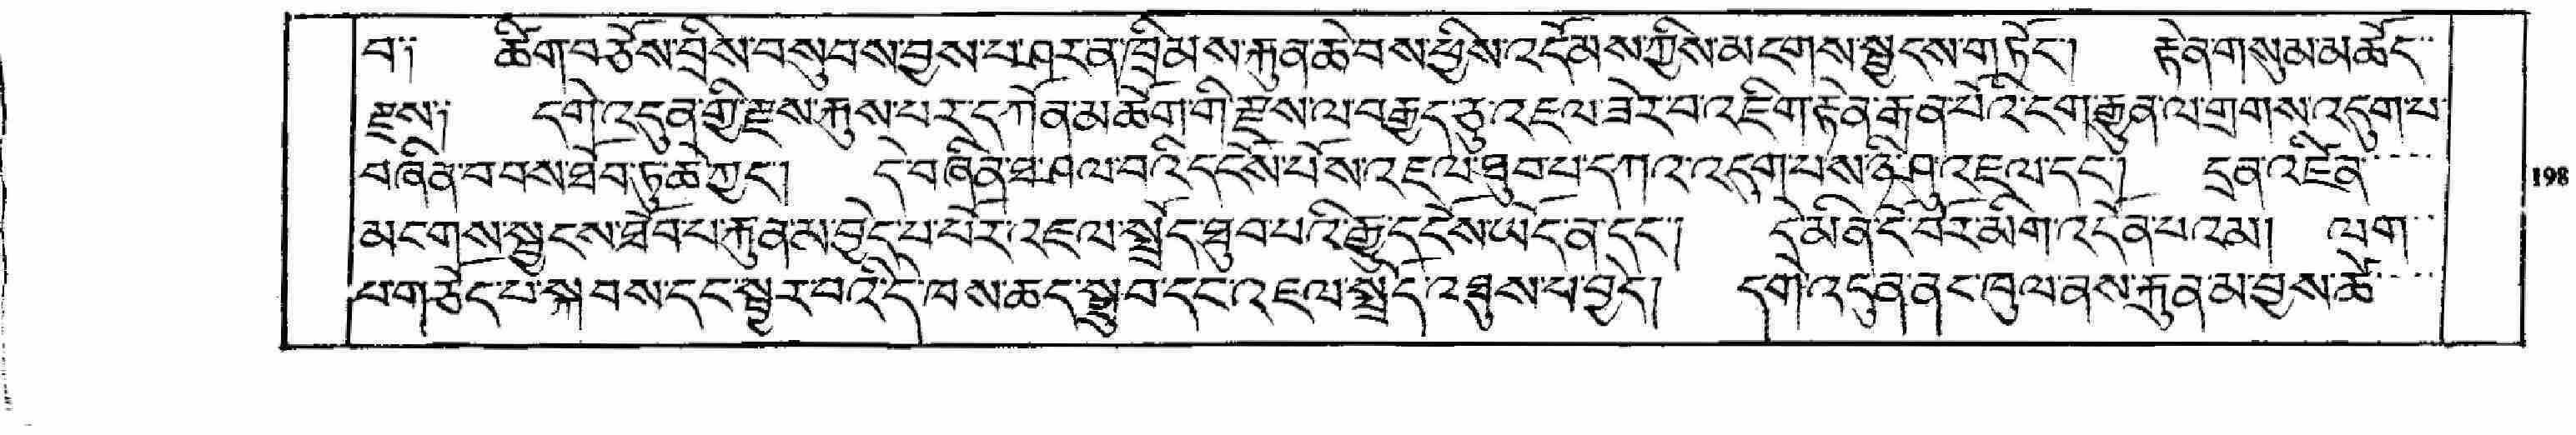 བ༎ ཚིག་བཅོས་བྲིས་བསུབས་བྱས་པ་ཤར་ན་ཁྲིམས་རྐུན་ཆེ་བས་ཕྱིས་འདོམས་ཀྱིས་མངགས་སྦྱངས་གཏོང་། རྟེན་གསུམ་མཆོད
རྫས༎ དགེ་འདུན་གྱི་རྫས་རྐུས་པར་དཀོན་མཆོག་གི་རྫས་ལ་བརྒྱད་ཅུ་འཇལ་ཟེར་བ་འཇིག་རྟེན་རྒན་པོའི་ངག་རྒྱུན་ལ་གྲགས་འདུག་པ་
བཞིན་བབས་ཐོབ་ཏུ་ཆེ་ཀྱང་། དེ་བཞིན་ཐ་ཤལ་བའི་དངོས་པོས་འཇལ་ཐུབ་པ་དཀའ་འདུག་པས་ཉི་ཤུ་འཇལ་དང་། དྲན་འཛིན་
མངགས་སྦྱངས་ཐོབ་པ་རྐུན་མ་བྱེད་པ་པོར་འཇལ་སྤྲོད་ཐུབ་པའི་རྒྱུ་དངོས་ཡོད་ན་དང་། དེ་མིན་ངོ་བོར་མིག་འདོན་པའམ། ལག
པ་གཅོད་པ་སྐབས་དང་སྦྱར་བའི་དེ་ཁས་ཆད་སྒྲུབ་དང་འཇལ་སྤྲོད་འཐུས་པ་བྱེད། དགེ་འདུན་ནང་ཁུལ་ནས་རྐུན་མ་བྱས་ཚེ་
198